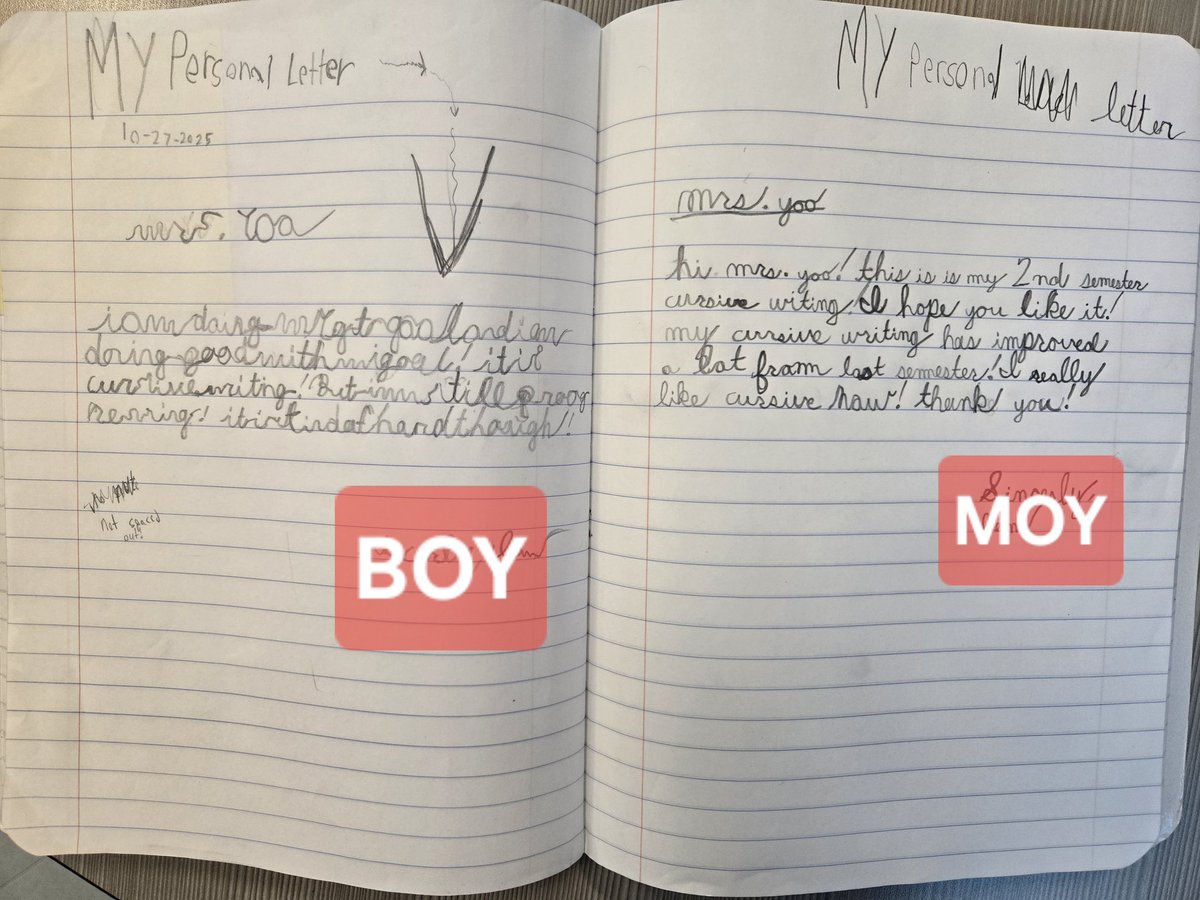 My Personal Letter
10-27-2025
mrs. Yoo
i am doing mY gt goal and i am
doing good with mi goal! it is
cursive writing! But im still proog
ressing! it is kindof hard though!
Not spaced
out!
BOY
My Personal letter
mrs. yoo
hi mrs. yoo! this is is my 2nd semester
cursive witing! I hope you like it!
my cursive writing has improved
a lot from last semester! I really
like cursive Now! thank you!
Sincerly
MOY